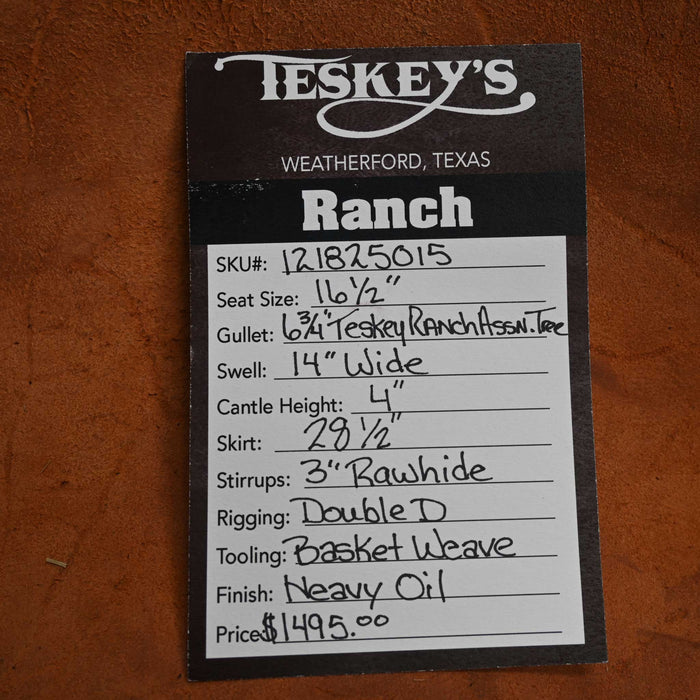 TESKEY'S
WEATHERFORD, TEXAS
Ranch
SKU#: 121825015
Seat Size: 16 1/2"
Gullet: 6 3/4" Teskey Ranch Assn. Tree
Swell: 14" Wide
Cantle Height: 4"
Skirt: 28 1/2"
Stirrups: 3" Rawhide
Rigging: Double D
Tooling: Basket Weave
Finish: Heavy Oil
Price: $1495.00